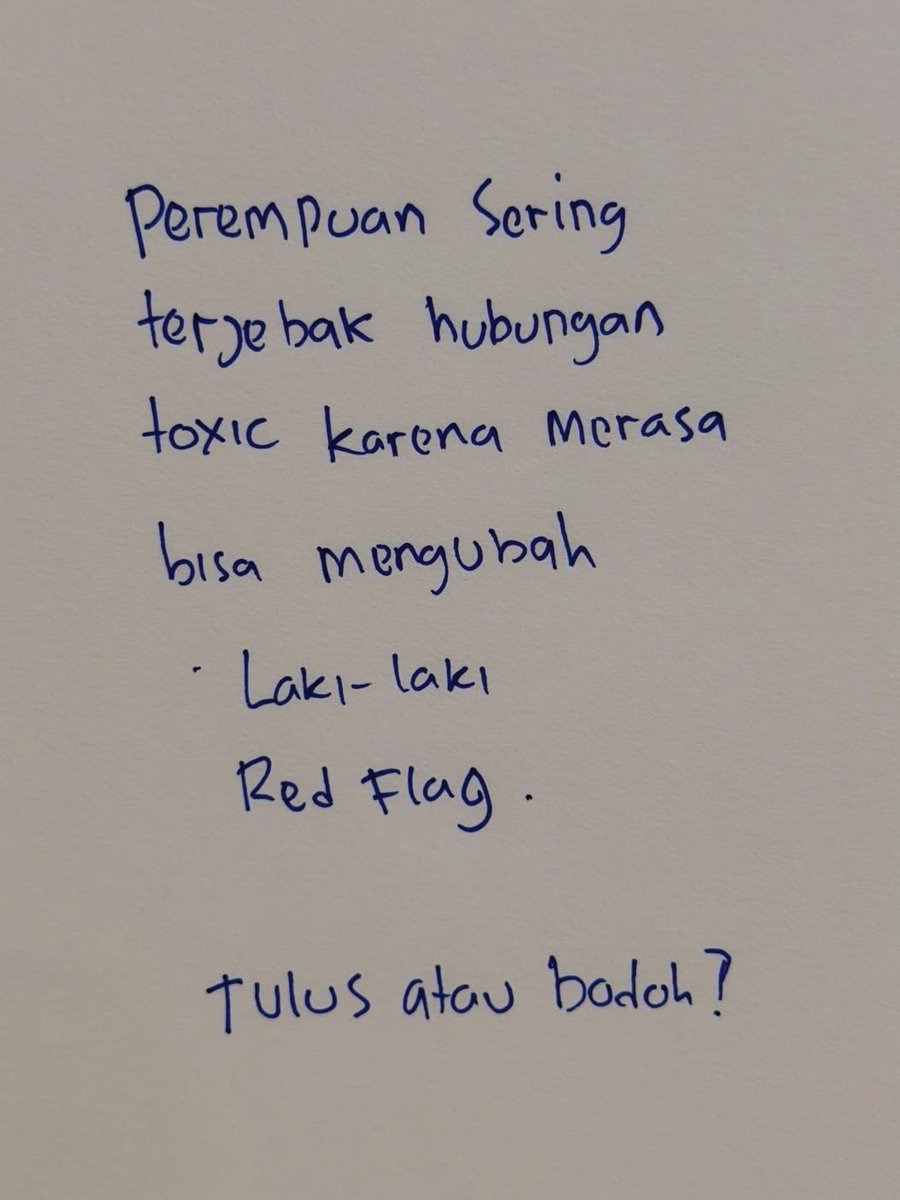 Perempuan Sering
terjebak hubungan
toxic karena merasa
bisa mengubah
Laki-laki
Red Flag.
Tulus atau bodoh?